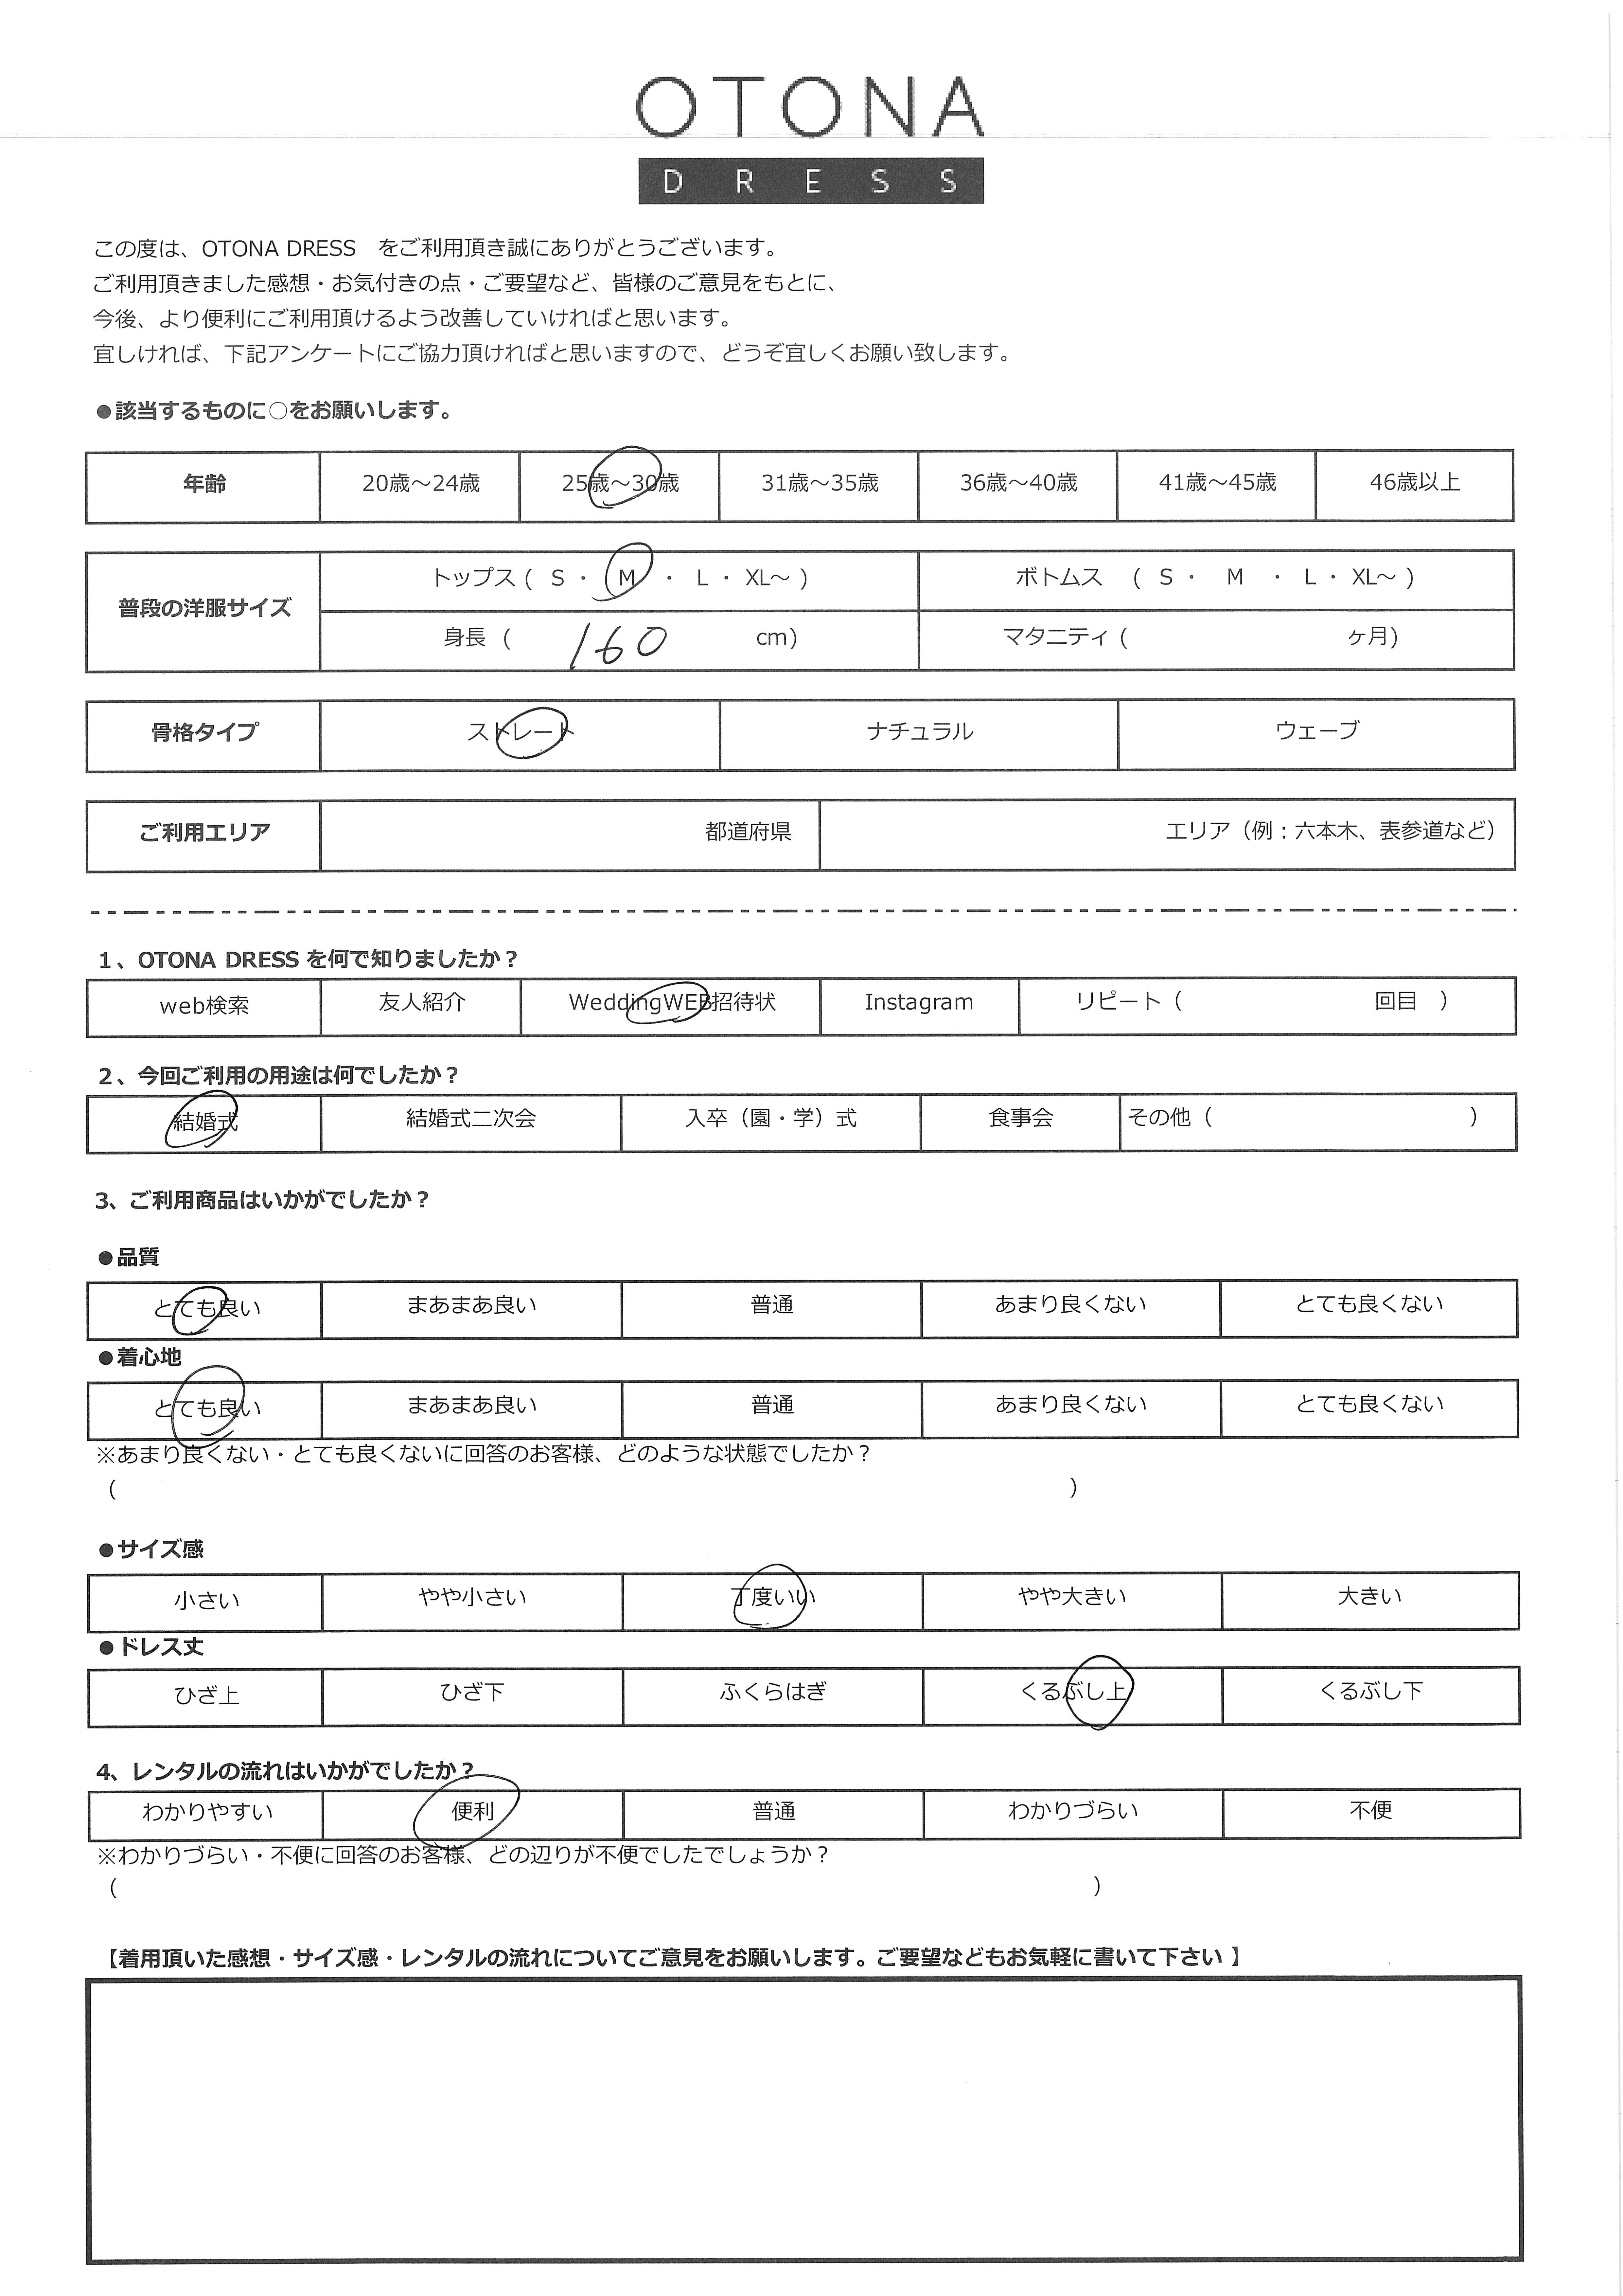 OTONA
DRESS
この度は、OTONA DRESS　をご利用頂き誠にありがとうございます。
ご利用頂きました感想・お気付きの点・ご要望など、皆様のご意見をもとに、
今後、より便利にご利用頂けるよう改善していければと思います。
宜しければ、下記アンケートにご協力頂ければと思いますので、どうぞ宜しくお願い致します。
●該当するものに○をお願いします。
年齢 20歳～24歳 25歳～30歳 31歳～35歳 36歳～40歳 41歳～45歳 46歳以上
普段の洋服サイズ
トップス ( S ・ M ・ L ・ XL～ ) ボトムス ( S ・ M ・ L ・ XL～ )
身長 ( 160 cm) マタニティ ( ヶ月)
骨格タイプ ストレート ナチュラル ウェーブ
ご利用エリア 都道府県 エリア（例：六本木、表参道など）
1、OTONA DRESS を何で知りましたか？
web検索 友人紹介 WeddingWEB招待状 Instagram リピート（ 回目 ）
2、今回ご利用の用途は何でしたか？
結婚式 結婚式二次会 入卒（園・学）式 食事会 その他（ ）
3、ご利用商品はいかがでしたか？
●品質
とても良い まあまあ良い 普通 あまり良くない とても良くない
●着心地
とても良い まあまあ良い 普通 あまり良くない とても良くない
※あまり良くない・とても良くないに回答のお客様、どのような状態でしたか？
（ ）
●サイズ感
小さい やや小さい 丁度いい やや大きい 大きい
●ドレス丈
ひざ上 ひざ下 ふくらはぎ くるぶし上 くるぶし下
4、レンタルの流れはいかがでしたか？
わかりやすい 便利 普通 わかりづらい 不便
※わかりづらい・不便に回答のお客様、どの辺りが不便でしたでしょうか？
（ ）
【着用頂いた感想・サイズ感・レンタルの流れについてご意見をお願いします。ご要望などもお気軽に書いて下さい 】